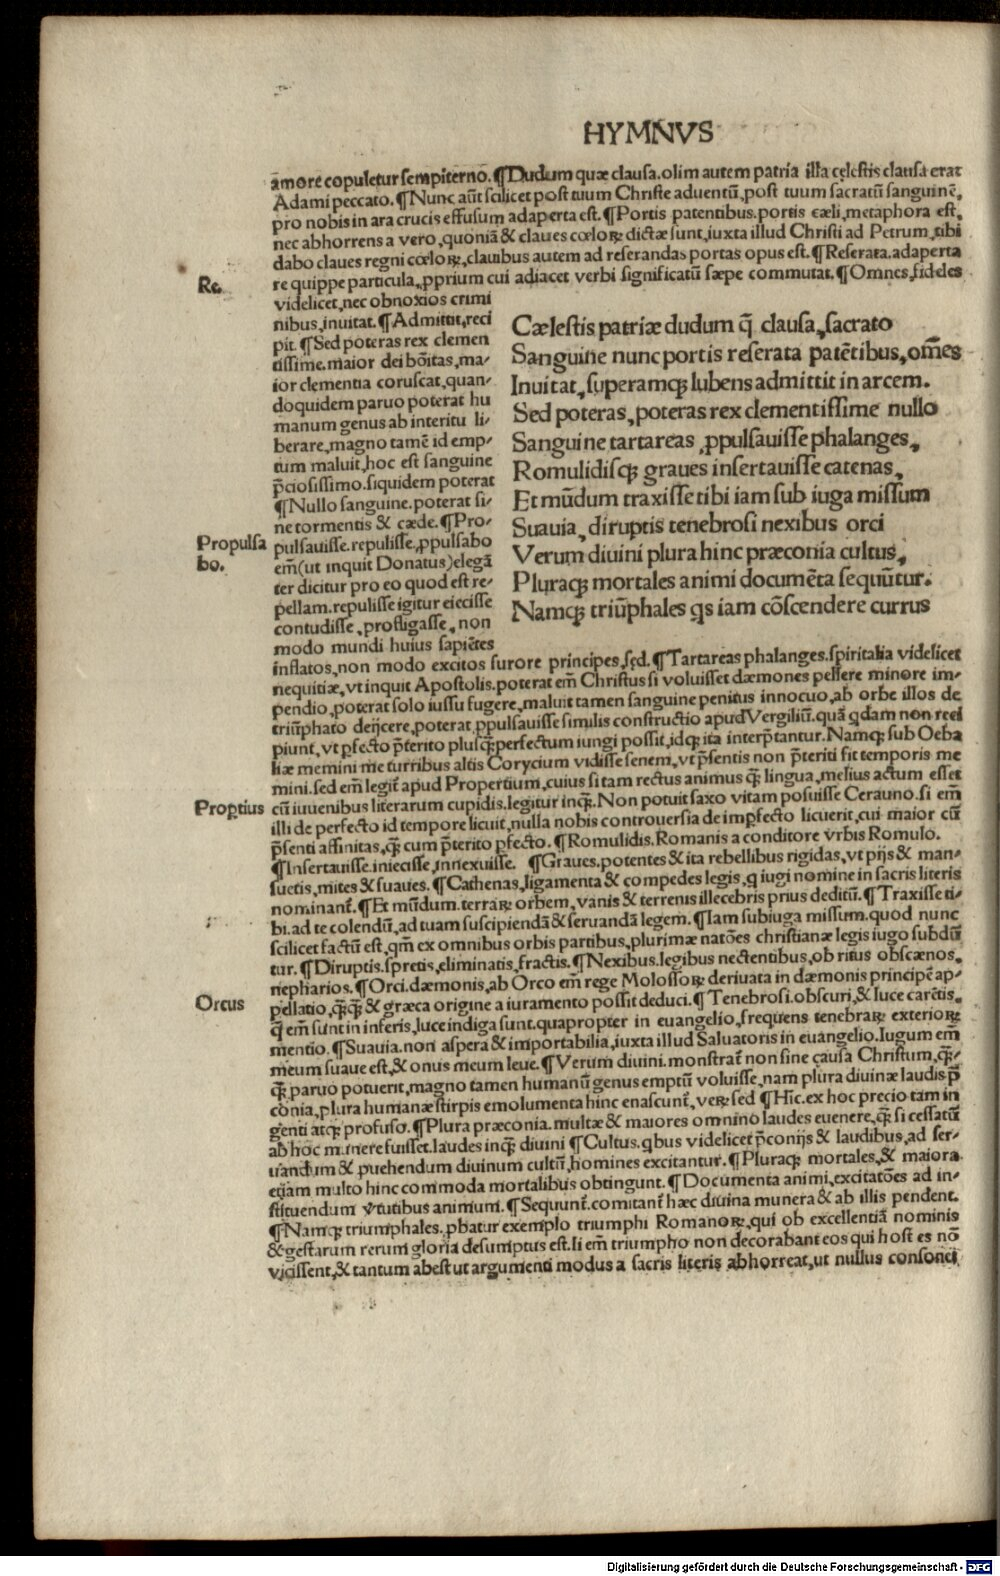 HYMNVS
amore copuletur sempiterno. ¶Dudum quæ clausa. olim autem patria illa cęlestis clausa erat
Adami peccato. ¶Nunc aūt scilicet post tuum Christe aduentū, post tuum sacratū sanguinē,
pro nobis in ara crucis effusum adaperta est. ¶Portis patentibus. portis cæli, metaphora est,
nec abhorrens a vero, quoniā & claues cœloꝝ dictæ sunt, iuxta illud Christi ad Petrum, tibi
dabo claues regni cœloꝝ, clauibus autem ad referandas portas opus est. ¶Reserata. adaperta
Re.
re quippe particula, ꝓprium cui adiacet verbi significatū sæpe commutat. ¶Omnes, fideles
videlicet, nec obnoxios crimi
nibus, inuitat. ¶Admittit, reci
pit. ¶Sed poteras rex clemen
tissime. maior dei bōitas, ma-
ior clementia coruscat, quan-
doquidem paruo poterat hu
manum genus ab interitu li-
berare, magno tamē id emp-
tum maluit, hoc est sanguine
p̄ciosissimo. siquidem poterat
¶Nullo sanguine. poterat si-
ne tormentis & cæde. ¶Pro-
Propulsa
bo.
pulsauisse. repulisse, ꝓpulsabo
em̄ (ut inquit Donatus) elegā
ter dicitur pro eo quod est re-
pellam. repulisse igitur eiecisse
contudisse, profligasse, non
modo mundi huius sapiētes
Cælestis patriæ dudum q̄ clausa, sacrato
Sanguine nunc portis reserata patētibus, om̄es
Inuitat, superamqꝫ lubens admittit in arcem.
Sed poteras, poteras rex clementissime nullo
Sanguine tartareas ꝓpulsauisse phalanges,
Romulidisqꝫ graues insertauisse catenas,
Et mūdum traxisse tibi iam sub iuga missum
Suauia, diruptis tenebrosi nexibus orci
Verum diuini plura hinc præconia cultus,
Pluraqꝫ mortales animi documēta sequūtur.
Namqꝫ triūphales qs iam cōscendere currus
inflatos, non modo excitos furore principes, sed. ¶Tartareas phalanges. spiritalia videlicet
nequitiæ, vt inquit Apostolis. poterat em̄ Christus si voluisset dæmones pellere minore im-
pendio, poterat solo iussu fugere, maluit tamen sanguine penitus innocuo, ab orbe illos de
triūphato deijcere, poterat ꝓpulsauisse similis constructio apud Vergiliū. quā qdam non reci
piunt, vt ꝑfecto p̄terito plusqꝫperfectum iungi possit, idqꝫ ita interp̄tantur. Namqꝫ sub Oeba
liæ memini me turribus altis Corycium vidisse senem, vt p̄sentis non p̄teriti fit temporis me
mini. sed em̄ legit̄ apud Propertium, cuius si tam rectus animus qꝫ lingua, melius actum esset
Proꝑtius
cū iuuenibus literarum cupidis. legitur inqꝫ. Non potuit saxo vitam posuisse Cerauno. si em̄
illi de perfecto id tempore licuit, nulla nobis controuersia de imꝑfecto licuerit, cui maior cū
p̄senti affinitas, qꝫ cum p̄terito ꝑfecto. ¶Romulidis. Romanis a conditore vrbis Romulo.
¶Insertauisse. iniecisse, innexuisse. ¶Graues. potentes & ita rebellibus rigidas, vt pijs & man-
suetis, mites & suaues. ¶Cathenas, ligamenta & compedes legis, q iugi nomine in sacris literis
nominant̄. ¶Et mūdum. terraꝝ orbem, vanis & terrenis illecebris prius deditū. ¶Traxisse ti-
bi. ad te colendū, ad tuam suscipiendā & seruandā legem. ¶Iam sub iuga missum. quod nunc
scilicet factū est, qm̄ ex omnibus orbis partibus, plurimæ natōes christianæ legis iugo subdū
tur. ¶Diruptis. spretis, eliminatis, fractis. ¶Nexibus. legibus nectentibus, ob ritus obscænos,
nepharios. ¶Orci. dæmonis, ab Orco em̄ rege Molossoꝝ deriuata in dæmonis principē ap-
Orcus
pellatio, qꝫqꝫ & græca origine a iuramento possit deduci. ¶Tenebrosi. obscuri, & luce carētis,
q̄ em̄ sunt in inferis, luce indiga sunt. quapropter in euangelio, frequens tenebraꝝ exterioꝝ
mentio. ¶Suauia. non aspera & importabilia, iuxta illud Saluatoris in euangelio. Iugum em̄
meum suaue est, & onus meum leue. ¶Verum diuini. monstrat̄ non sine causa Christum, qꝫ-
qꝫ paruo potuerit, magno tamen humanū genus emptū voluisse, nam plura diuinæ laudis p̄
conia, plura humanæ stirpis emolumenta hinc enascunt̄, veꝝ sed ¶Hic. ex hoc precio tam in
genti atqꝫ profuso. ¶Plura præconia. multæ & maiores omnino laudes euenere, qꝫ si cessatū
ab hoc munere fuisset. laudes inqꝫ diuini ¶Cultus. qbus videlicet p̄conijs & laudibus, ad ser-
uandum & ꝓuehendum diuinum cultū, homines excitantur. ¶Pluraqꝫ mortales, & maiora
etiam multo hinc commoda mortalibus obtingunt. ¶Documenta animi, excitatōes ad in-
stituendum v̓tutibus animum. ¶Sequunt̄. comitant̄ hæc diuina munera & ab illis pendent.
¶Namqꝫ triumphales. ꝓbatur exemplo triumphi Romanoꝝ, qui ob excellentiā nominis
& gestarum rerum gloria desumptus est. Ii em̄ triumpho non decorabant eos qui host es nō
vicissent, & tantum abest ut argumenti modus a sacris literis abhorreat, ut nullus consoncij
Digitalisierung gefördert durch die Deutsche Forschungsgemeinschaft - DFG